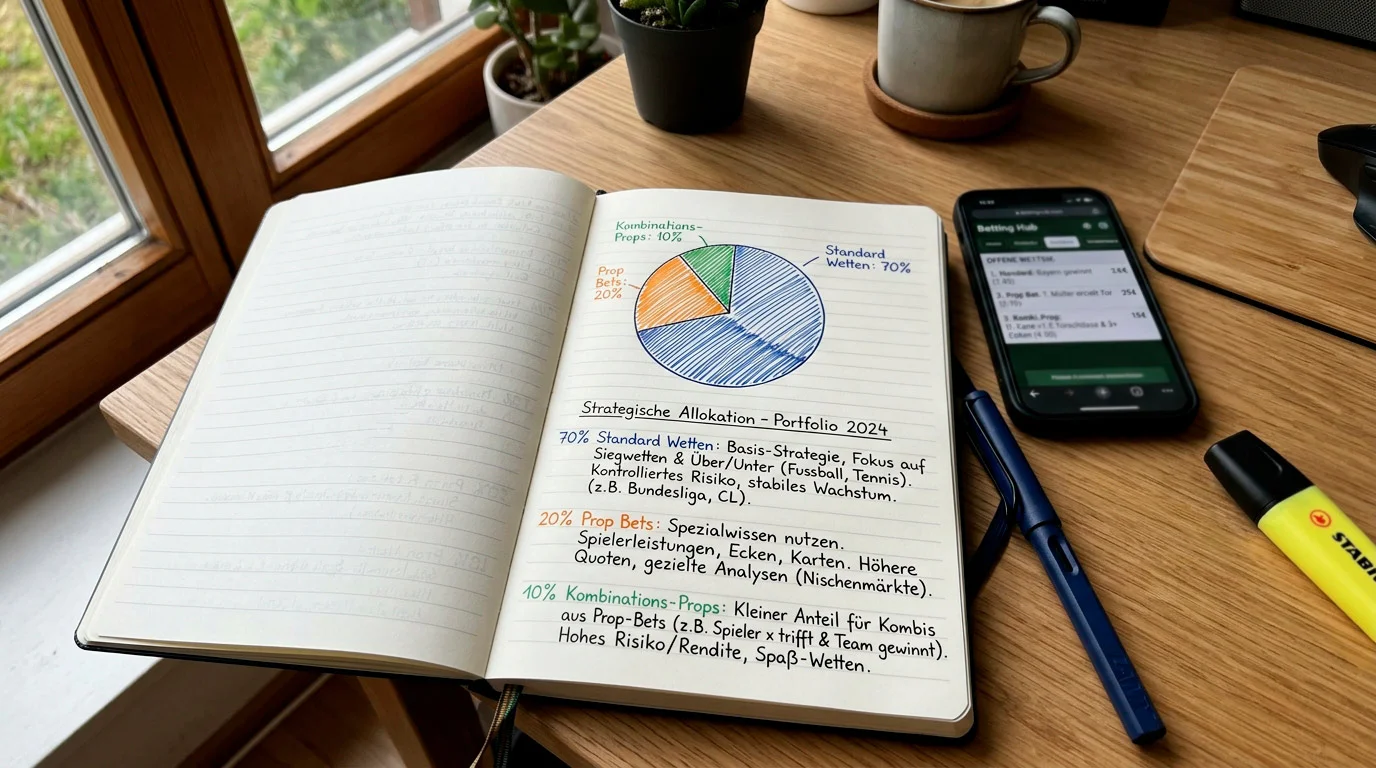 Kombinations-
Props: 10%
Standard
Wetten: 70%
Prop
Bets:
20%
Strategische Allokation – Portfolio 2024
70% Standard Wetten: Basis-Strategie, Fokus auf
Siegwetten & Über/Unter (Fussball, Tennis).
Kontrolliertes Risiko, stabiles Wachstum.
(z.B. Bundesliga, CL).
20% Prop Bets: Spezialwissen nutzen.
Spielerleistungen, Ecken, Karten. Höhere
Quoten, gezielte Analysen (Nischenmärkte).
10% Kombinations-Props: Kleiner Anteil für Kombis
aus Prop-Bets (z.B. Spieler x trifft & Team gewinnt).
Hohes Risiko/Rendite, Spaß-Wetten.
Betting Hub
OFFENE
1. Bayern gewinnt
2. Prop Bet.
3. Kombi.
STABIL